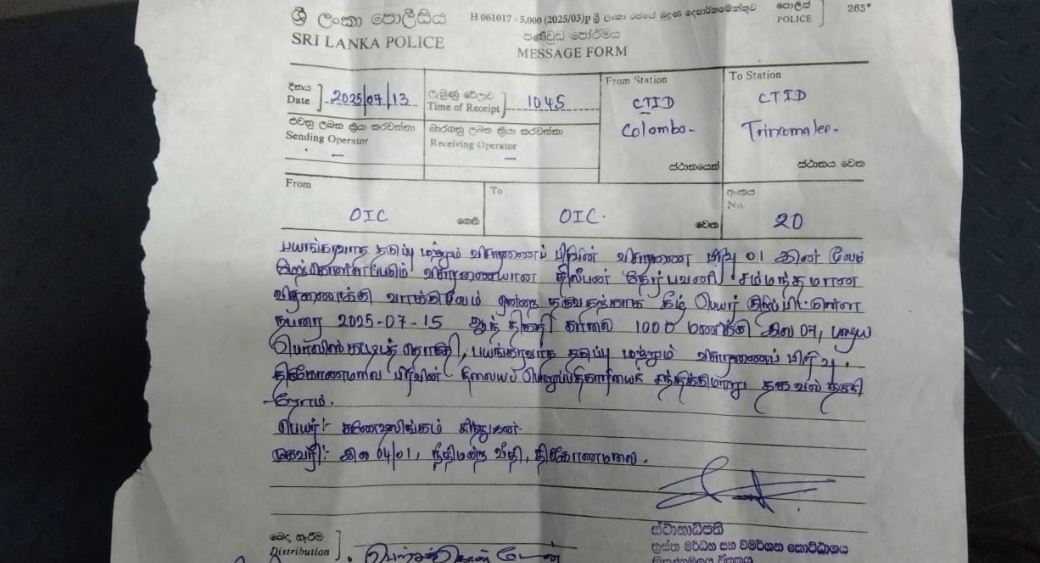 ශ්‍රී ලංකා පොලීසිය
SRI LANKA POLICE
H 061017 - 5,000 (2025/03)p ශ්‍රී ලංකා රජයේ මුද්‍රණ දෙපාර්තමේන්තුව
පණිවුඩ පෝර්මය
MESSAGE FORM
පොලිස්
POLICE
265
දිනය
Date
2025/07/13
ලැබුණු වේලාව
Time of Receipt
1045
From Station
CTID
Colombo-
ස්ථානයෙන්
To Station
CTID
Trincomalee-
ස්ථානය වෙත
Sending Operator
-
Receiving Operator
-
From
OIC
ගෙන්
To
OIC.
වෙත
අංකය
No.
20
பயங்கரவாத தடுப்பு மற்றும் விசாரணைப் பிரிவின் விசாரணை பிரிவு 01 இன்
மேற்கொள்ளப்படும் விசாரணையான திலீபன் சம்மந்தமான
வாக்குமூலம் ஒன்றை தருவதற்காக கீழ் பெயர் குறிப்பிட்டுள்ள
நபரை 2025-07-15 ஆந் திகதி காலை 1000 மணிக்கு இல 07, பழைய
பயங்கரவாத தடுப்பு மற்றும் விசாரணைப் பிரிவு,
திருகோணமலை பிரிவின் நிலையப் பொறுப்பதிகாரியைச் சந்திக்குமாறு
பெயர்:-
முகவரி:- இல 04/01, நீதிமன்ற வீதி, திருகோணமலை.
බෙදා හැරීම
Distribution
ස්ථානාධිපති
ත්‍රස්ත මර්ධන සහ විමර්ශන කොට්ඨාශය